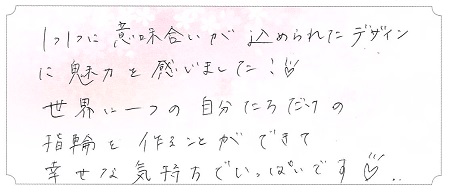 1つ1つに意味合いが込められたデザイン
に魅力を感じました!♡
世界に一つの自分たちだけの
指輪を作ることができて
幸せな気持ちでいっぱいです♡..